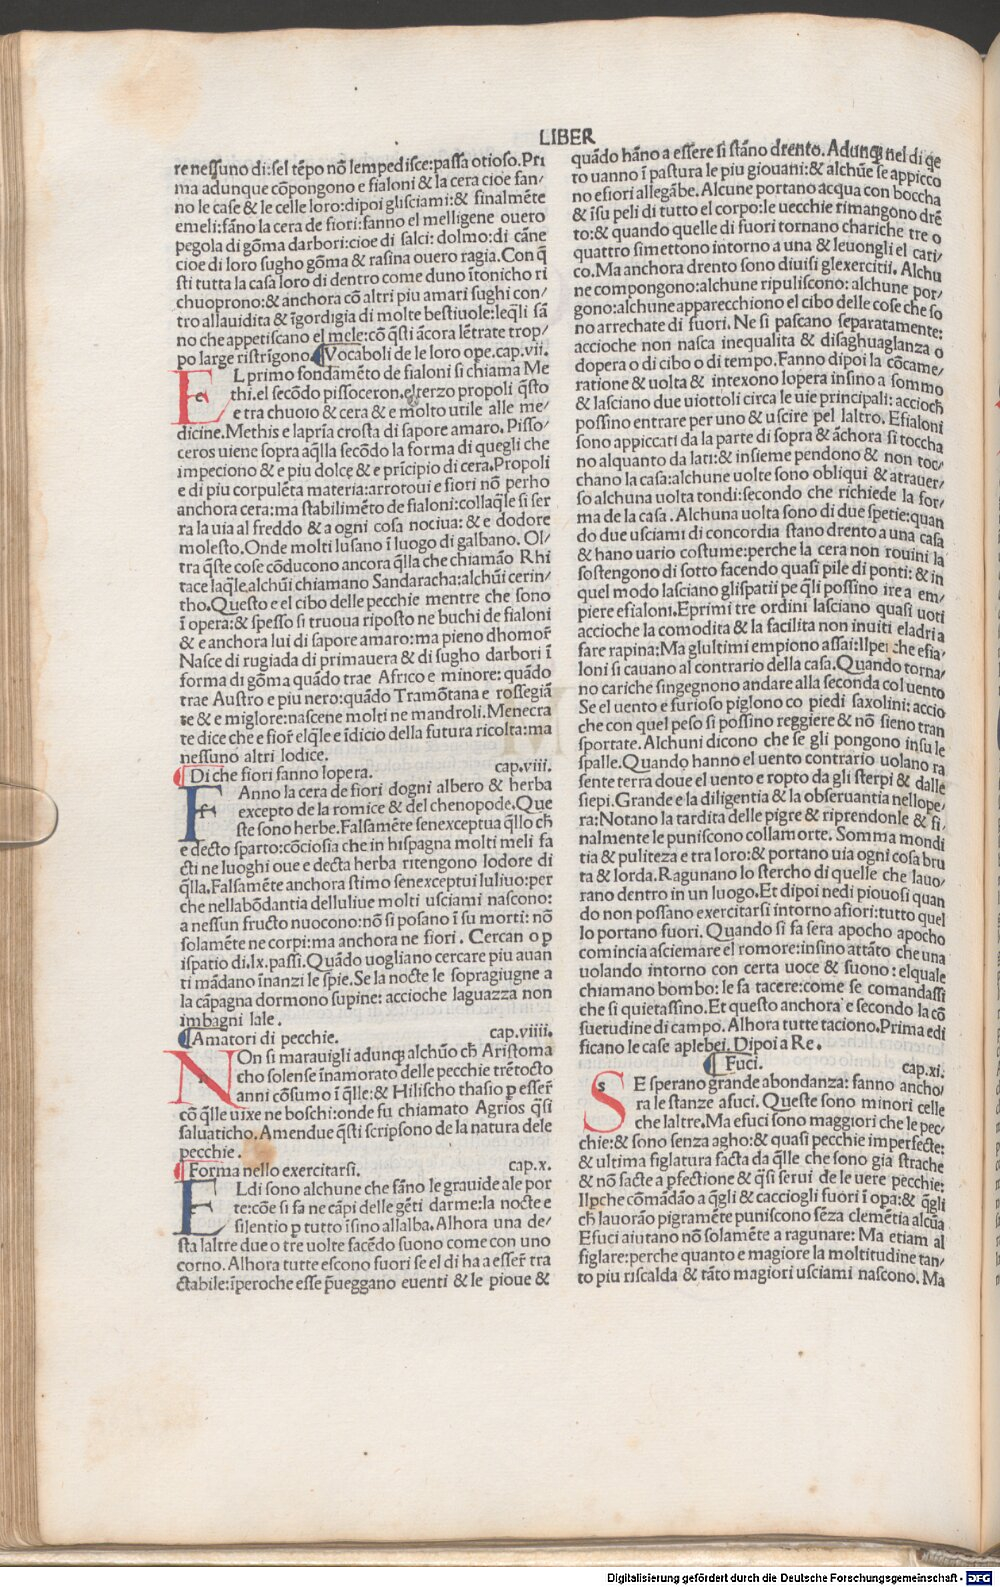 LIBER
re nessuno di:sel tẽpo nõ lempedisce:passa otioso.Pri
ma adunque cõpongono e fialoni & la cera cioe fan/
no le case & le celle loro:dipoi glisciami:& finalmẽte
emeli:fãno la cera de fiori:fanno el melligene ouero
pegola di gõma darbori:cioe di salci: dolmo:di cãne
cioe di loro sugho gõma & rasina ouero ragia.Con q̃
sti tutta la casa loro di dentro come duno ĩtonicho ri
chuoprono:& anchora cõ altri piu amari sughi con/
tro allauidita & ĩgordigia di molte bestiuole:leq̃li sã
no che appetiscano el mele:cõ q̃sti ãcora lẽtrate trop/
po large ristrĩgono.¶Vocaboli de le loro ope.cap.vii.
EL primo fondamẽto de fialoni si chiama Me
thi.el secõdo pissoceron.el terzo propoli q̃sto
e tra chuoio & cera & e molto utile alle me/
dicine.Methis e lapr̃ia crosta di sapore amaro.Pisso/
ceros uiene sopra aq̃lla secõdo la forma di quegli che
impeciono & e piu dolce & e prĩcipio di cera.Propoli
e di piu corpulẽta materia:arrotoui e fiori nõ perho
anchora cera:ma stabilimẽto de fialoni:collaq̃le si ser
ra la uia al freddo & a ogni cosa nociua: & e dodore
molesto.Onde molti lusano ĩ luogo di galbano. Ol/
tra q̃ste cose cõducono ancora q̃lla che chiamão Rhi
tace laq̃le alchũi chiamano Sandaracha:alchũi cerin/
tho.Questo e el cibo delle pecchie mentre che sono
ĩ opera:& spesso si truoua riposto ne buchi de fialoni
& e anchora lui di sapore amaro:ma pieno dhomor̃
Nasce di rugiada di primauera & di sugho darbori ĩ
forma di gõma quãdo trae Africo e minore: quãdo
trae Austro e piu nero:quãdo Tramõtana e rossegiã
te & e miglore:nascene molti ne mandroli.Menecra
te dice che e fior̃ elq̃le e ĩdicio della futura ricolta:ma
nessuno altri lodice.
¶Di che fiori fanno lopera. cap.viii.
FAnno la cera de fiori dogni albero & herba
excepto de la romice & del chenopode.Que
ste sono herbe.Falsamẽte senexceptua q̃llo ch̃
e decto sparto:cõciosia che in hispagna molti meli fa
cti ne luoghi oue e decta herba ritengono lodore di
q̃lla.Falsamẽte anchora stimo senexceptui luliuo:per
che nellabõdantia delluliue molti usciami nascono:
a nessun fructo nuocono:nõ si posano ĩ su morti: nõ
solamẽte ne corpi:ma anchora ne fiori . Cercan o p̱
ispatio di.lx.passi.Quãdo uogliano cercare piu auan
ti mãdano ĩnanzi le spie.Se la nocte le sopragiugne a
la cãpagna dormono supine: accioche laguazza non
imbagni lale.
¶Amatori di pecchie. cap.viiii.
NOn si marauigli adunq; alchũo ch̃ Aristoma
cho solense ĩnamorato delle pecchie trẽtocto
anni cõsumo ĩ q̃lle:& Hilischo thasio p̱ esser̃
cõ q̃lle uixe ne boschi:onde fu chiamato Agrios q̃si
saluaticho.Amendue q̃sti scripsono de la natura dele
pecchie.
¶Forma nello exercitarsi. cap.x.
ELdi sono alchune che fãno le grauide ale por
te:cõe si fa ne cãpi delle gẽti darme:la nocte e
silentio p̱ tutto ĩsino allalba.Alhora una de/
sta laltre due o tre uolte facẽdo suono come con uno
corno.Alhora tutte escono fuori se el di ha a esser̃ tra
ctabile:ĩperoche esse p̃ueggano euenti & le pioue &
quãdo hãno a essere si stãno drento.Adunq; nel di q̃e
to uanno ĩ pastura le piu giouani:& alchũe se appicco
no efiori allegãbe.Alcune portano acqua con boccha
& ĩsu peli di tutto el corpo:le uecchie rimangono drẽ
to:& quando quelle di fuori tornano chariche tre o
quattro simettono intorno a una & leuongli el cari/
co.Ma anchora drento sono diuisi glexercitii. Alchu
ne compongono:alchune ripuliscono: alchune por/
gono:alchune apparecchiono el cibo delle cose che so
no arrechate di fuori. Ne si pascano separatamente:
accioche non nasca inequalita & disaghuaglanza o
dopera o di cibo o di tempo.Fanno dipoi la cõcame/
ratione & uolta & intexono lopera insino a sommo
& lasciano due uiottoli circa le uie principali: accioch̃
possino entrare per uno & uscire pel laltro. Efialoni
sono appiccati da la parte di sopra & ãchora si toccha
no alquanto da lati:& insieme pendono & non toc/
chano la casa:alchune uolte sono obliqui & atrauer/
so alchuna uolta tondi:secondo che richiede la for/
ma de la casa . Alchuna uolta sono di due spetie:quan
do due usciami di concordia stano drento a una casa
& hano uario costume:perche la cera non rouini la
sostengono di sotto facendo quasi pile di ponti: & in
quel modo lasciano glispatii pe q̃li possino ire a em/
piere efialoni.Eprimi tre ordini lasciano quasi uoti
accioche la comodita & la facilita non inuiti eladri a
fare rapina:Ma glultimi empiono assai:Ilperche efia/
loni si cauano al contrario della casa.Quando torna/
no cariche singegnono andare alla seconda col uento
Se el uento e furioso piglono co piedi saxolini: accio
che con quel peso si possino reggiere & nõ sieno tran
sportate. Alchuni dicono che se gli pongono insu le
spalle.Quando hanno el uento contrario uolano ra
sente terra doue el uento e ropto da gli sterpi & dalle
siepi.Grande e la diligentia & la obseruantia nellope/
ra:Notano la tardita delle pigre & riprendonle & fi/
nalmente le puniscono collamorte. Somma mondi
tia & puliteza e tra loro:& portano uia ogni cosa bru
ta & lorda.Ragunano lo stercho di quelle che lauo/
rano dentro in un luogo.Et dipoi nedi piouosi quan
do non possano exercitarsi intorno afiori:tutto quel
lo portano fuori. Quando si fa sera apocho apocho
comincia asciemare el romore:insino attãto che una
uolando intorno con certa uoce & suono: elquale
chiamano bombo: le fa tacere:come se comandassi
che si quietassino.Et questo anchora e secondo la cõ
suetudine di campo.Alhora tutte taciono.Prima edi
ficano le case aplebei. Dipoi a Re.
¶Fuci. cap.xi.
SE sperano grande abondanza: fanno ancho/
ra le stanze afuci. Queste sono minori celle
che laltre.Ma efuci sono maggiori che le pec/
chie:& sono senza agho:& quasi pecchie imperfecte:
& ultima figlatura facta da q̃lle che sono gia strache
& nõ facte a p̱fectione & q̃si serui de le uere pecchie:
Ilp̱che cõmãdão a q̃gli & cacciogli fuori ĩ opa:& q̃gli
ch̃ lauorão pigramẽte puniscono sẽza clemẽtia alcũa
Efuci aiutano nõ solamẽte a ragunare: Ma etiam al
figlare:perche quanto e magiore la moltitudine tan/
to piu riscalda & tãto magiori usciami nascono. Ma
Digitalisierung gefördert durch die Deutsche Forschungsgemeinschaft - DFG